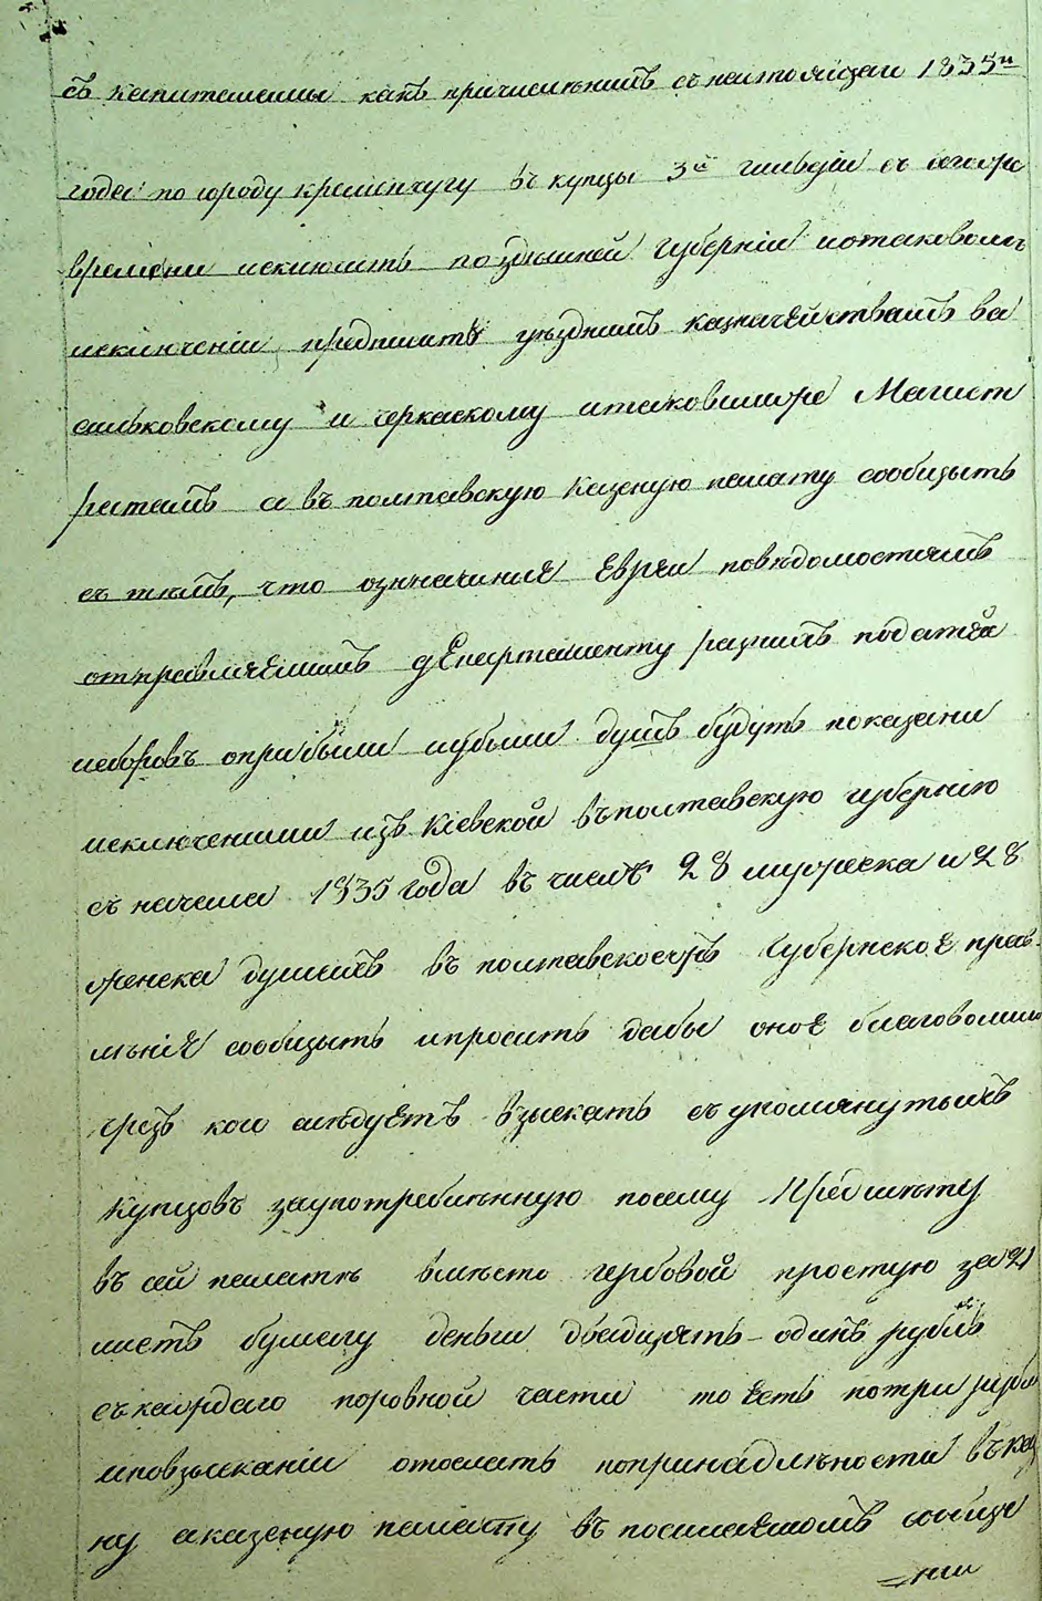 съ капиталами какъ причисленнимъ съ настоящаи 1835го
года по городу кременчугу въ купцы 3й гильвдіи съ того же
времени исключить поздѣшней губерніи иотаковомъ
исключеніи предписать уѣзднимъ казначействамъ ва
сильковскому и черкаскому итаковимже Магист
ратамъ а въ полтавскую казеную палату сообщыть
съ тѣмъ, что означиние Евреи повѣдомостямъ
отправляемимъ дЕпартаменту разнихъ податей
исборовъ оприбыли иубыли душъ будутъ показани
исключенними изъ Кіевской въполтавскую губернію
съ начала 1835 года въ числѣ 28 мужеска и 28
женска душахъ въ полтавскоежъ Губернское прав-
лѣніе сообщыть ипросить дабы оное благоволило
чрезъ кого слѣдуетъ взыскать съ упомянутыхъ
Купцовъ заупотреблѣнную посему Предмѣту
въ сей палатѣ вмѣсто гербовой простую за 21
листъ бумагу деньги двадцять-одинъ рубль
съ каждаго поровной части то Есть потри рубл
иповзысканіи отослать попринадлѣности въ каз
ну аказеную палату въ посилаемомъ сообще
-нии